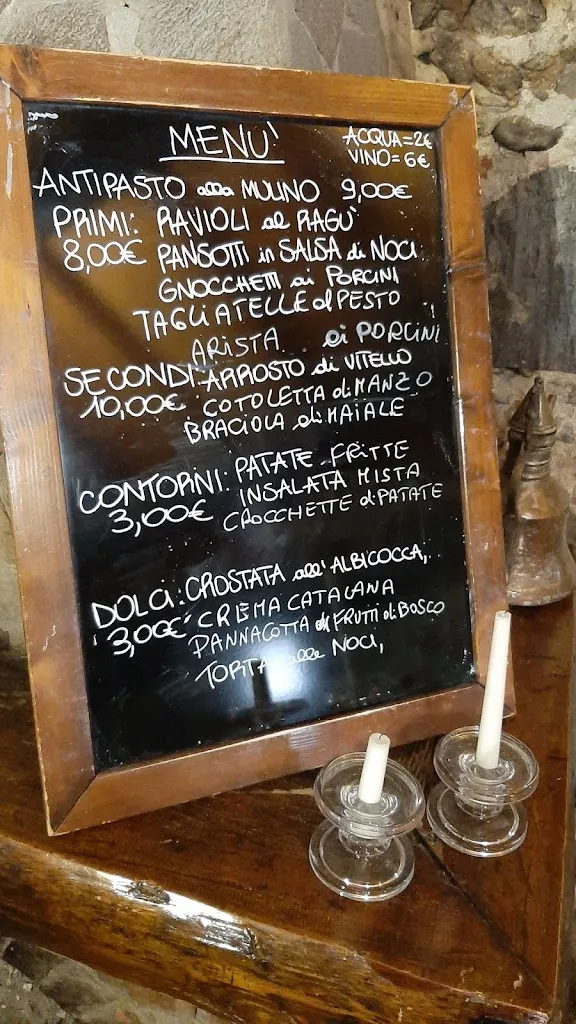 MENU'
ACQUA=2€
VINO=6€
ANTIPASTO alla MULINO 9,00€
PRIMI: RAVIOLI al RAGU'
8,00€ PANSOTTI in SALSA di NOCI
GNOCCHETTI ai PORCINI
TAGLIATELLE al PESTO
ARISTA ai PORCINI
SECONDI: ARROSTO di VITELLO
10,00€ COTOLETTA di MANZO
BRACIOLA di MAIALE
CONTORNI: PATATE FRITTE
3,00€ INSALATA MISTA
CROCCHETTE di PATATE
DOLCI: CROSTATA all'ALBICOCCA,
3,00€ CREMA CATALANA
PANNACOTTA ai FRUTTI di BOSCO
TORTA alle NOCI,